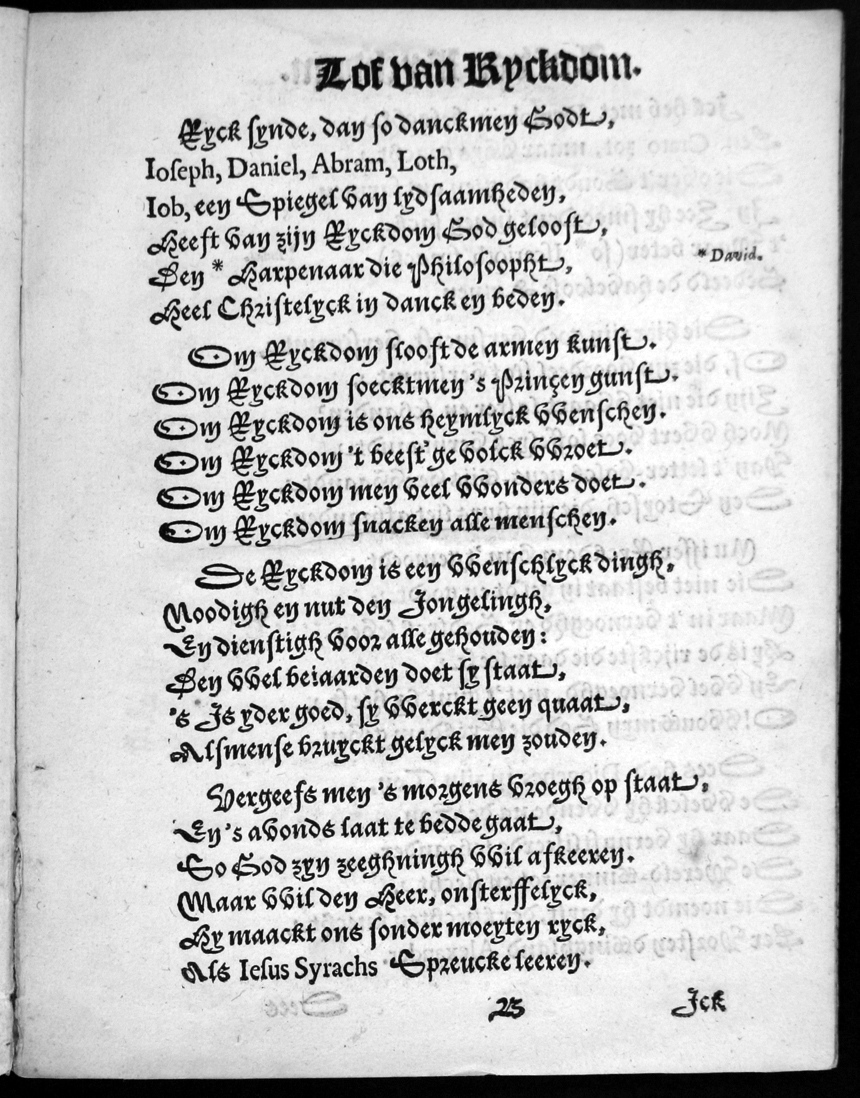 Lof van Ryckdom.
Ryck synde, dan so danckmen Godt,
Ioseph, Daniel, Abram, Loth,
Iob, een Spiegel van lydsaamheden,
Heeft van zijn Ryckdom God gelooft,
Den * Harpenaar die Philosoopht,
* David.
Heel Christelyck in danck en beden.
Om Ryckdom slooft de armen kunst.
Om Ryckdom soecktmen 's Prinçen gunst.
Om Ryckdom is ons heymlyck vvenschen.
Om Ryckdom 't beest'ge volck vvroet.
Om Ryckdom men veel vvonders doet.
Om Ryckdom snacken alle menschen.
De Ryckdom is een vvenschlyck dingh,
Noodigh en nut den Jongelingh,
En dienstigh voor alle gehouden:
Den vvel beiaarden doet sy staat,
's Is yder goed, sy vverckt geen quaat,
Alsmense bruyckt gelyck men zouden.
Vergeefs men 's morgens vroegh op staat,
En 's avonds laat te bedde gaat,
So God zyn zeeghningh vvil afkeeren.
Maar vvil den Heer, onsterffelyck,
Hy maackt ons sonder moeyten ryck,
Als Iesus Syrachs Spreucke leeren.
23
Jck